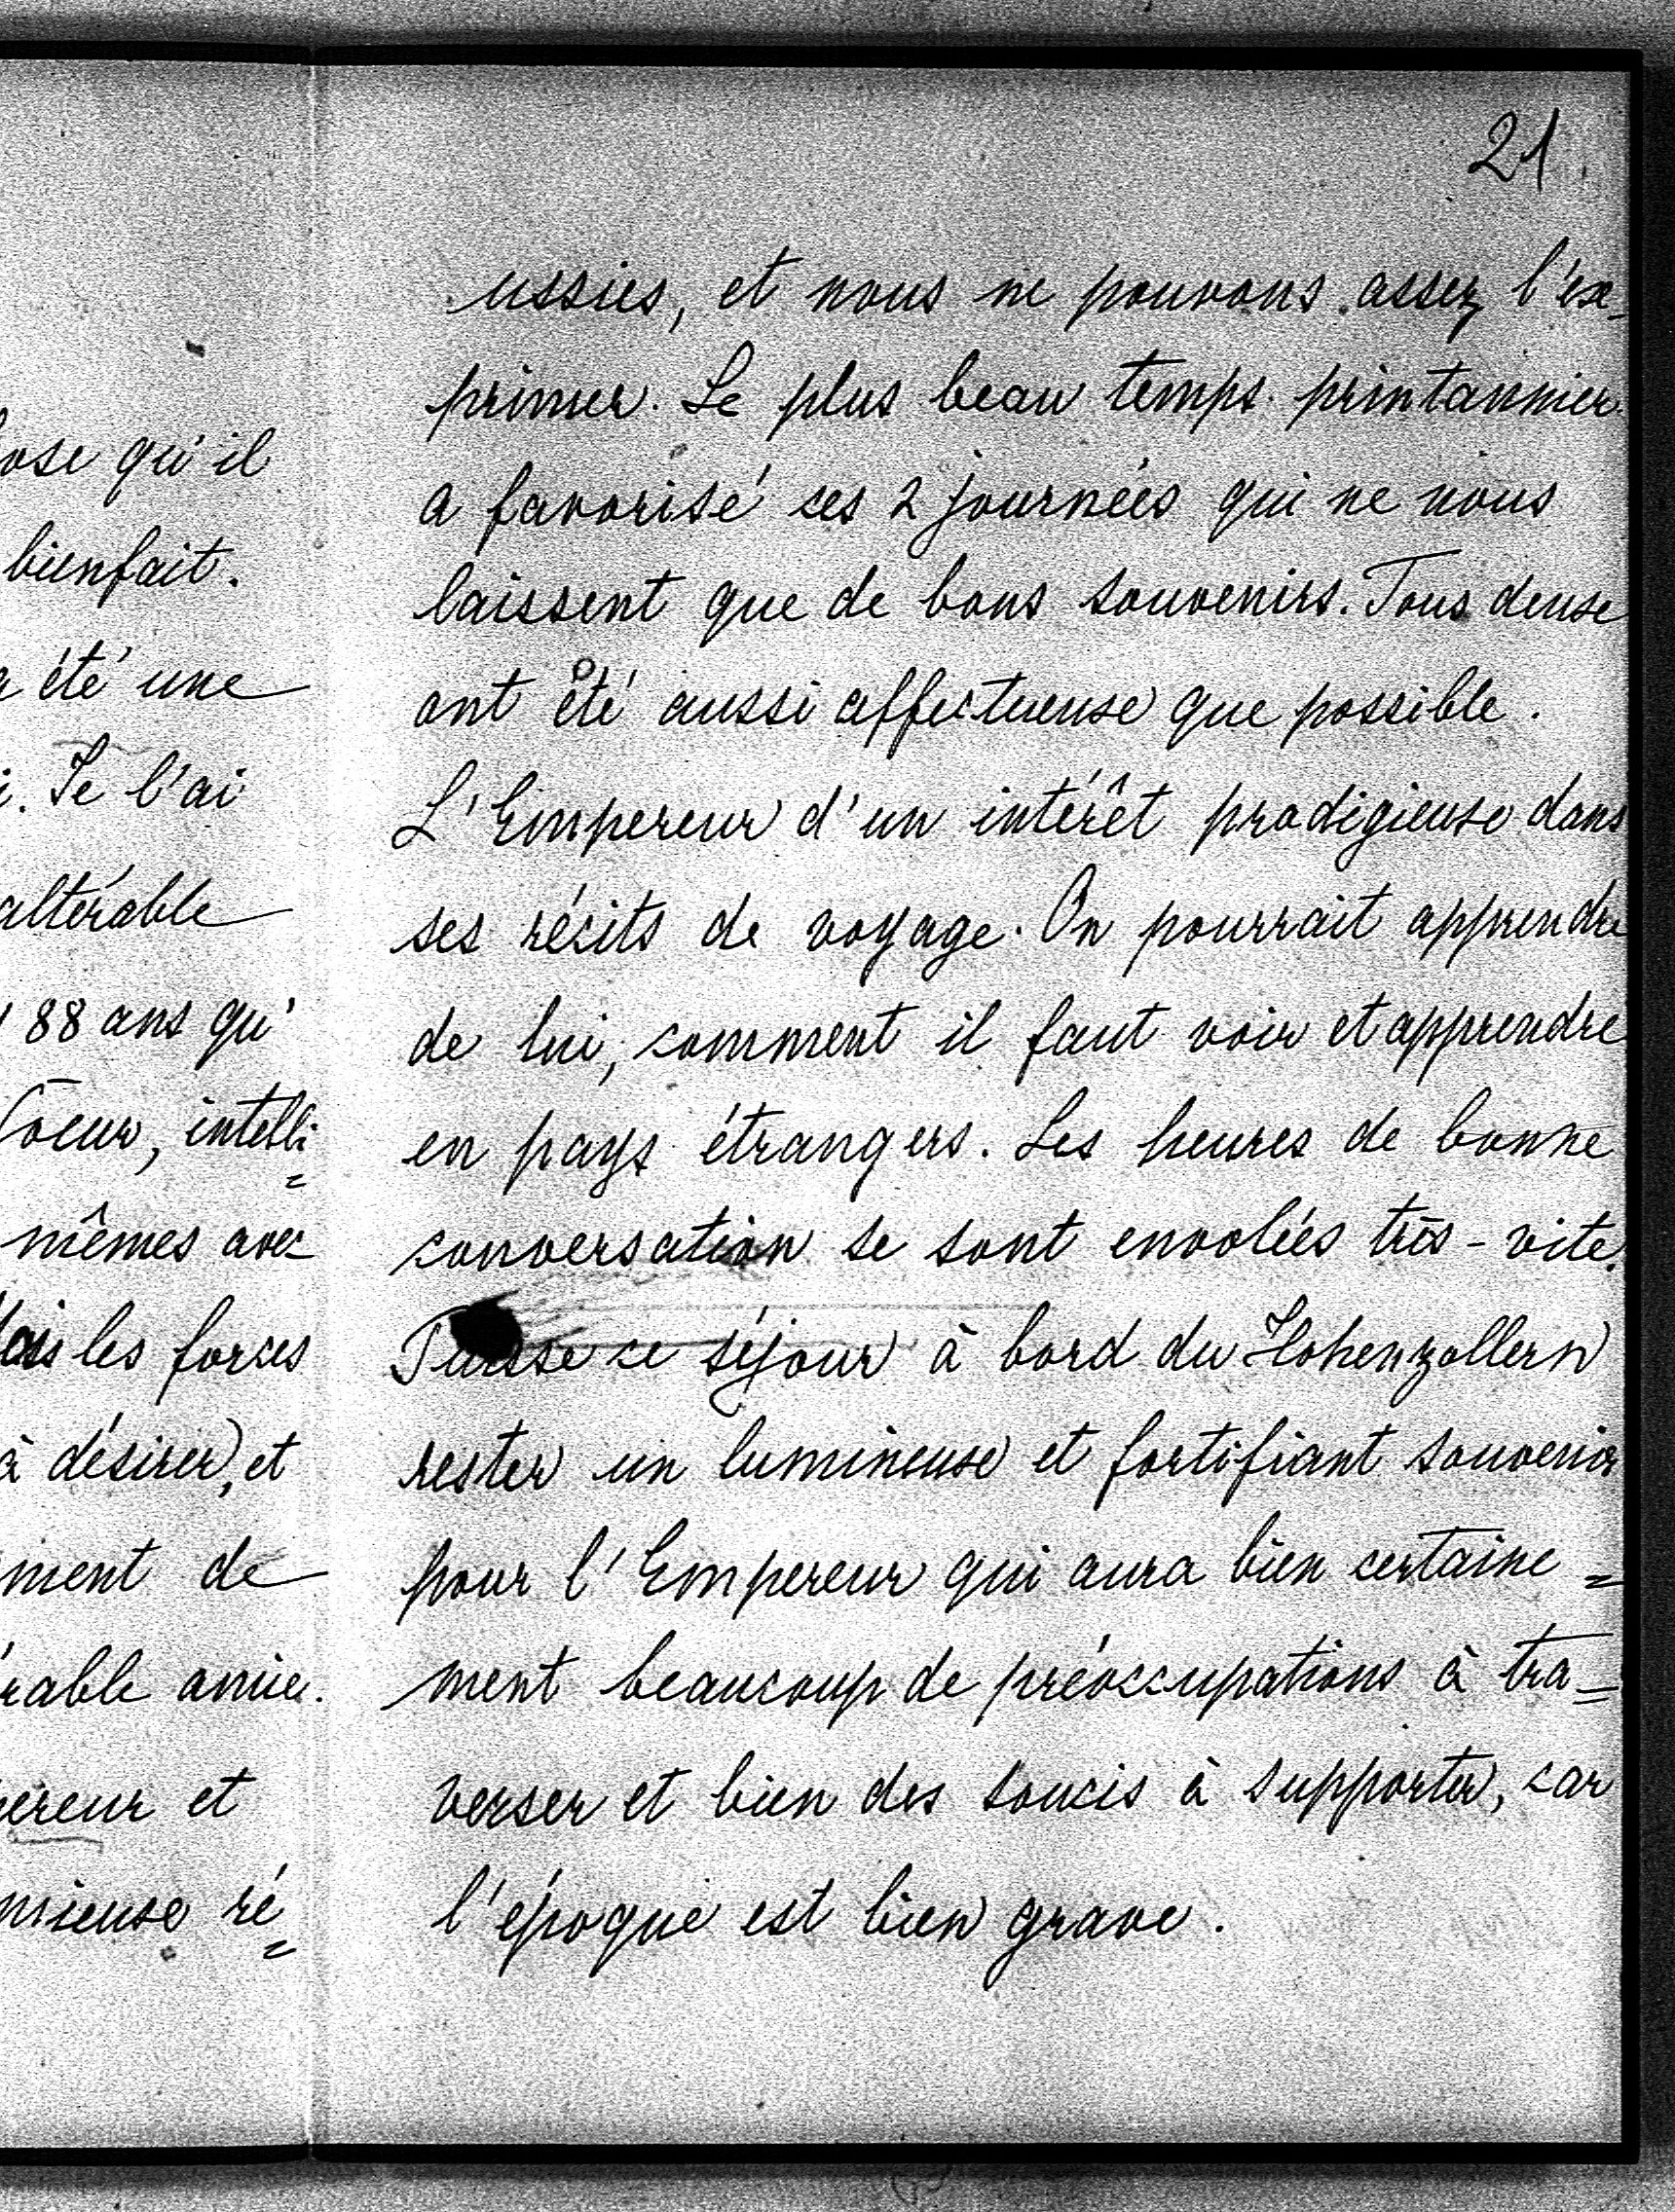 ose qu'il
bienfait.
a été une
i. Je l'ai
altérable
88 ans qu'
Coeur, intelli=
mêmes avec
Mais les forces
à désirer, et
ment de
rable amie.
pereur et
mieux ré=
21
ussies, et nous ne pouvons assez l'ex-
primer. Le plus beau temps printannier
a favorisé ces 2 journées qui ne nous
laissent que de bons souvenirs. Tous deux
ont été aussi affectueux que possible.
L'Empereur d'un intérêt prodigieux dans
ses récits de voyage. On pourrait apprendre
de lui, comment il faut voir et apprendre
en pays étrangers. Les heures de bonne
conversation se sont envolées très-vite.
Puisse ce séjour à bord du Hohenzollern
rester un lumineux et fortifiant souvenir
pour l'Empereur qui aura bien certaine=
ment beaucoup de préoccupations à tra=
verser et bien des soucis à supporter, car
l'époque est bien grave.